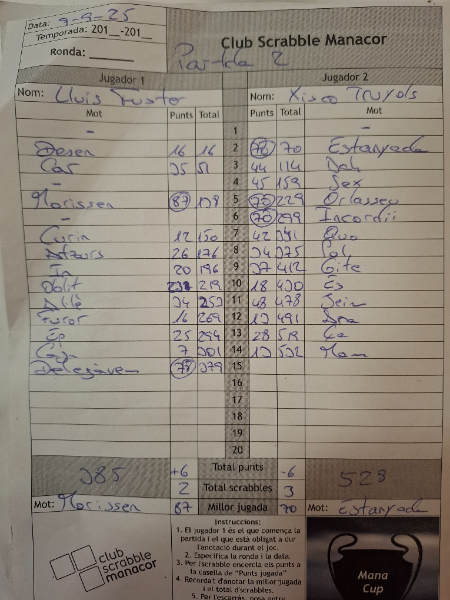 Data: 7-9-25
Temporada: 201__-201__
Ronda:
Club Scrabble Manacor
Partida 2
Jugador 1 Jugador 2
Nom: Lluis Fuster Nom: Xisco Truyols
Mot Punts Total Punts Total Mot
- 1 -
Desen 16 16 2 70 70 Estanyada
Car 35 51 3 44 114 Dah
- 4 45 159 Sex
Morissen 87 138 5 70 229 Orlasseu
- 6 70 299 Incordii
12 150 7 42 341 Quo
26 176 8 34 375
In 20 196 9 37 412 Gite
Oblit 219 10 18 430 Es
34 253 11 48 478
Furor 16 269 12 13 491
Ep 25 294 13 28 519 Ça
7 301 14 13 532 Mam
Delegàvem 78 379 15
16
17
18
19
20
385 +6 Total punts -6 528
2 Total scrabbles 3
Mot: Morissen 87 Millor jugada 70 Mot: Estanyada
Instruccions:
1. El jugador 1 és el que comença la
partida i el que està obligat a dur
l'anotació durant el joc.
2. Especifica la ronda i la data.
3. Per l'scrabble encercla els punts a
la casella de "Punts jugada"
4. Recorda't d'anotar la millor jugada
i el total d'scrabbles.
5. Per l'escarràs, posa entre
club
scrabble
manacor
Mana
Cup